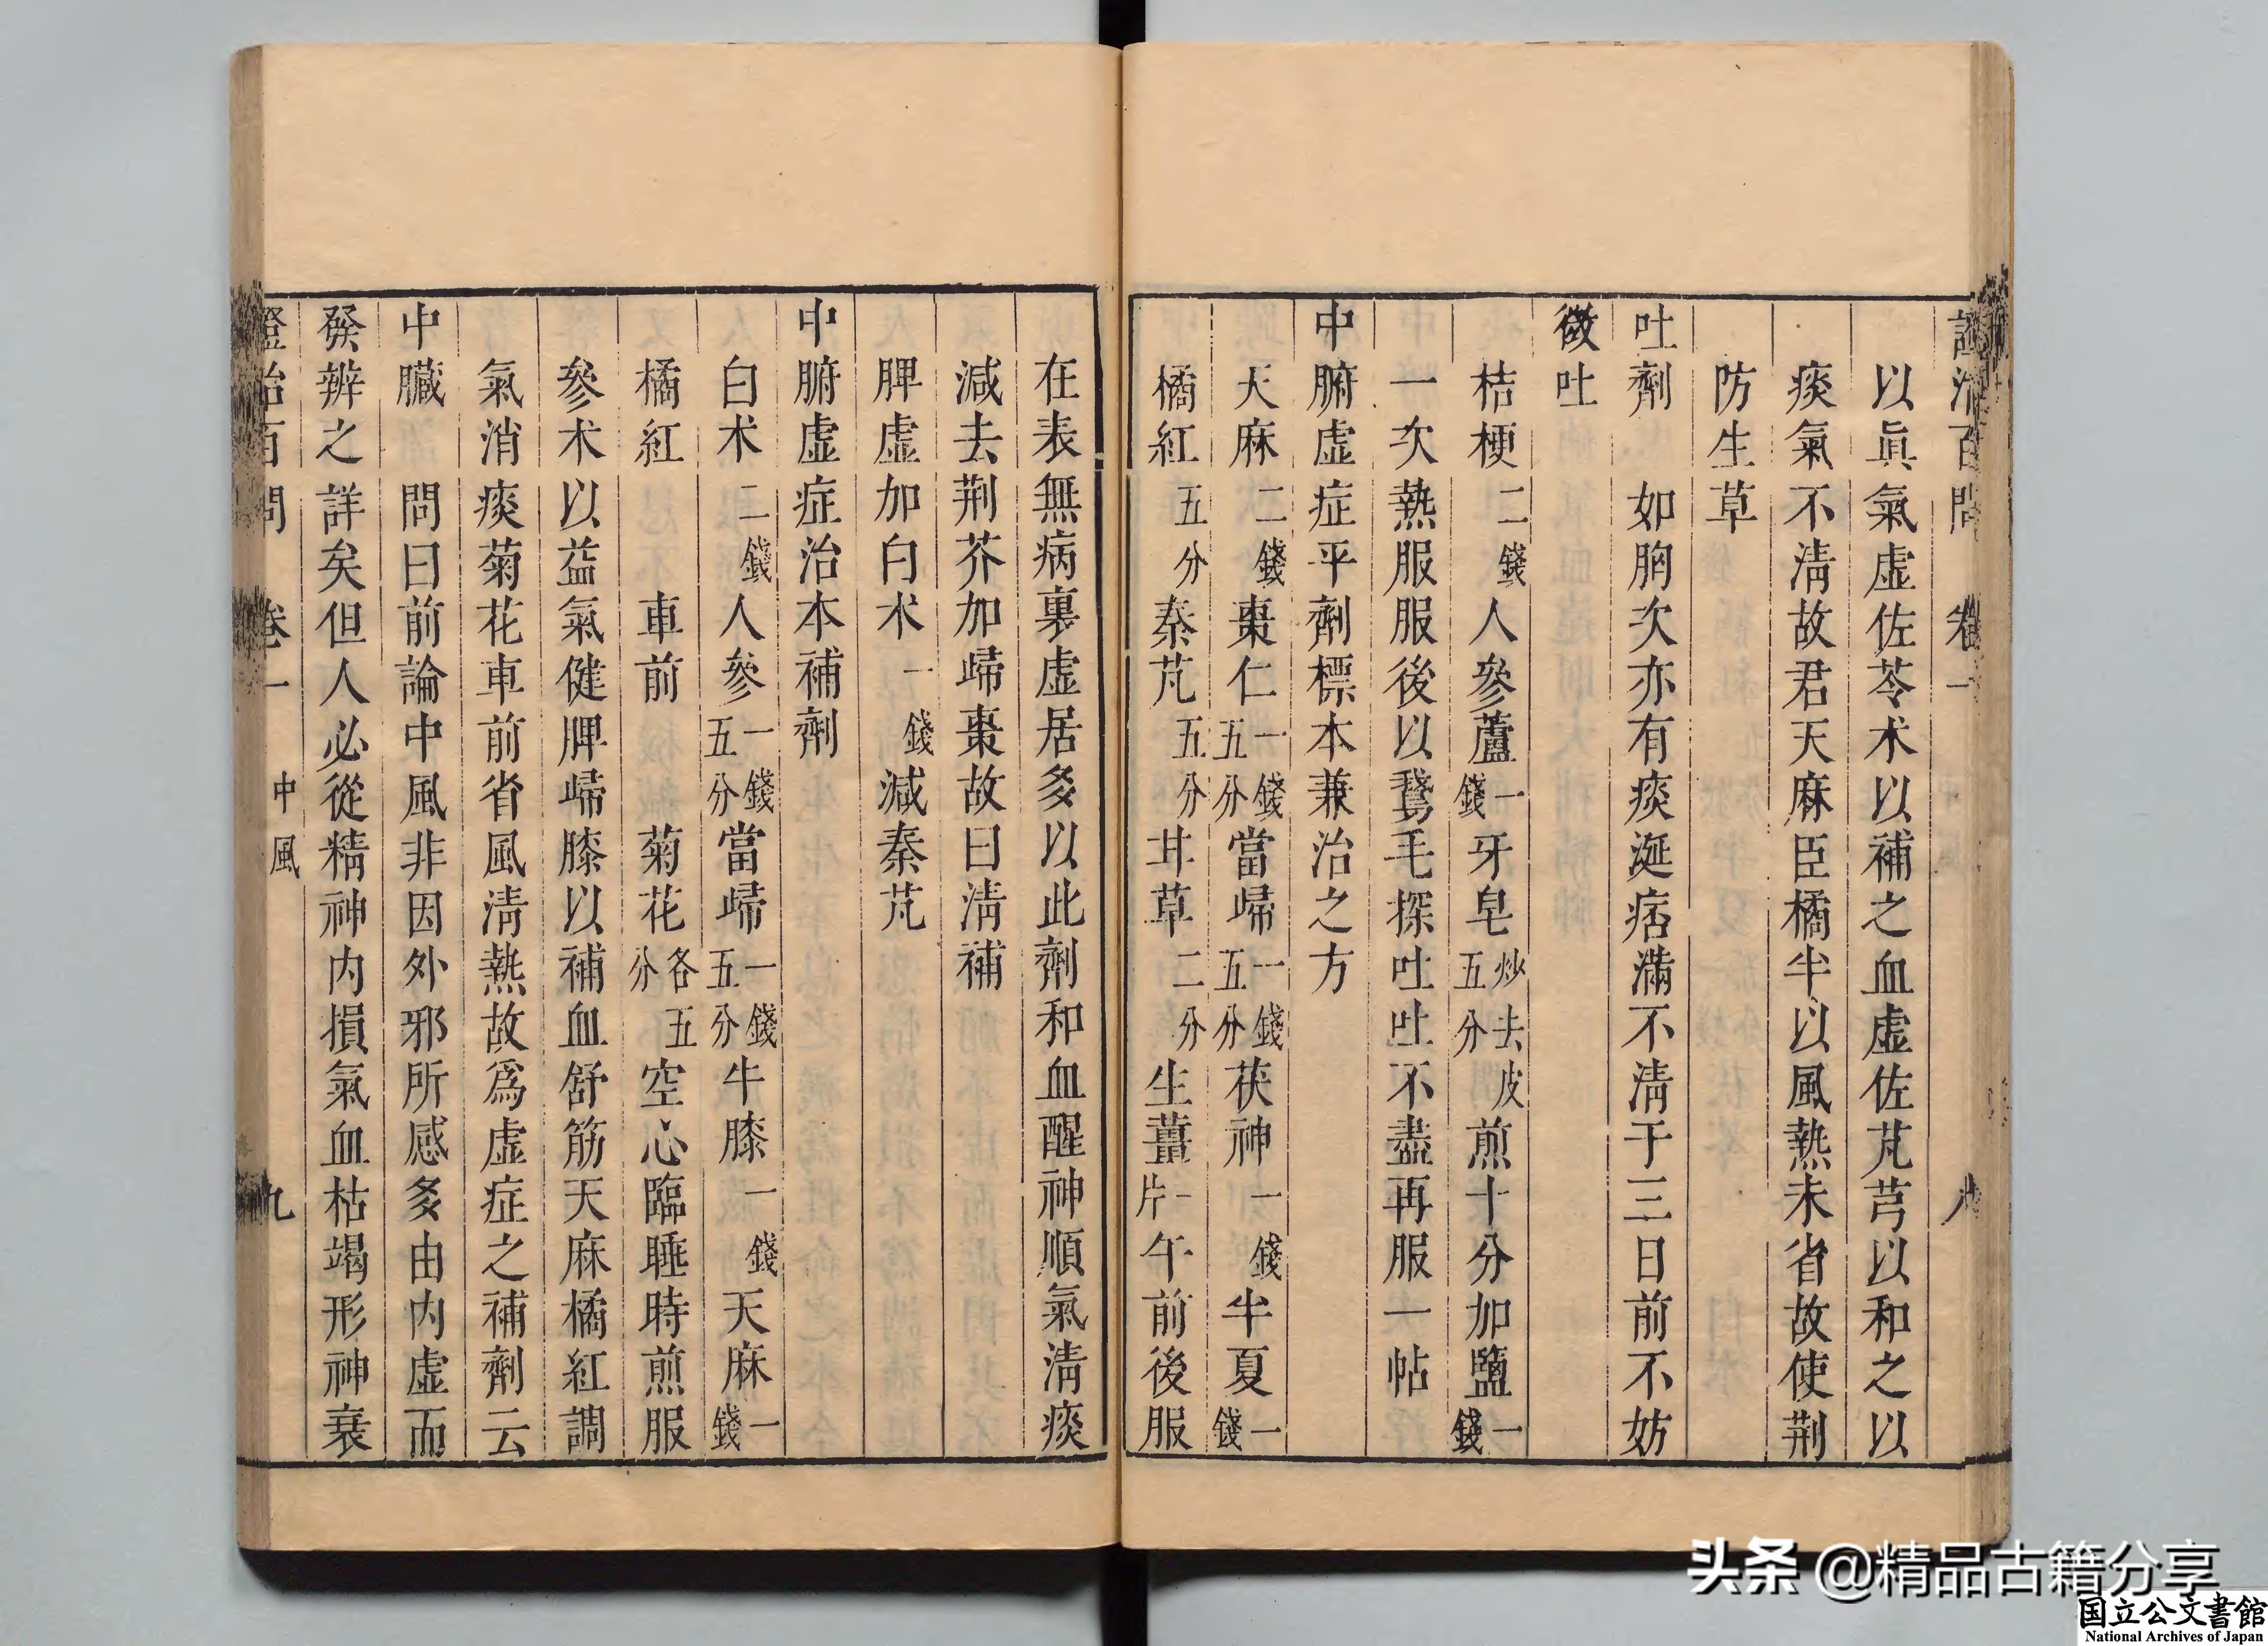 證治百問 卷一 八
以眞氣虛佐苓术以補之血虛佐芃芎以和之以
痰氣不淸故君天麻臣橘半以風熱未省故使荆
防生草
吐劑 如胸次亦有痰涎痞滿不淸于三日前不妨
微吐
桔梗二錢人參蘆一錢牙皂炒去皮五分煎十分加鹽一錢
一次熱服服後以鵞毛探吐吐不盡再服一帖
中腑虛症平劑標本兼治之方
天麻二錢棗仁一錢五分當歸一錢五分茯神一錢半夏一錢
橘紅五分秦芃五分甘草二分生薑一片午前後服
在表無病裏虛居多以此劑和血醒神順氣淸痰
減去荆芥加歸棗故曰淸補
脾虛加白术一錢減秦芃
中腑虛症治本補劑
白术二錢人參一錢五分當歸一錢五分牛膝一錢天麻一錢
橘紅 車前 菊花各五分空心臨睡時煎服
參术以益氣健脾歸膝以補血舒筋天麻橘紅調
氣消痰菊花車前省風淸熱故爲虛症之補劑云
中臟 問曰前論中風非因外邪所感多由内虛而
發辨之詳矣但人必從精神内損氣血枯竭形神衰
證治百問 卷一 中風 九
头条 @精品古籍分享
国立公文書館
National Archives of Japan